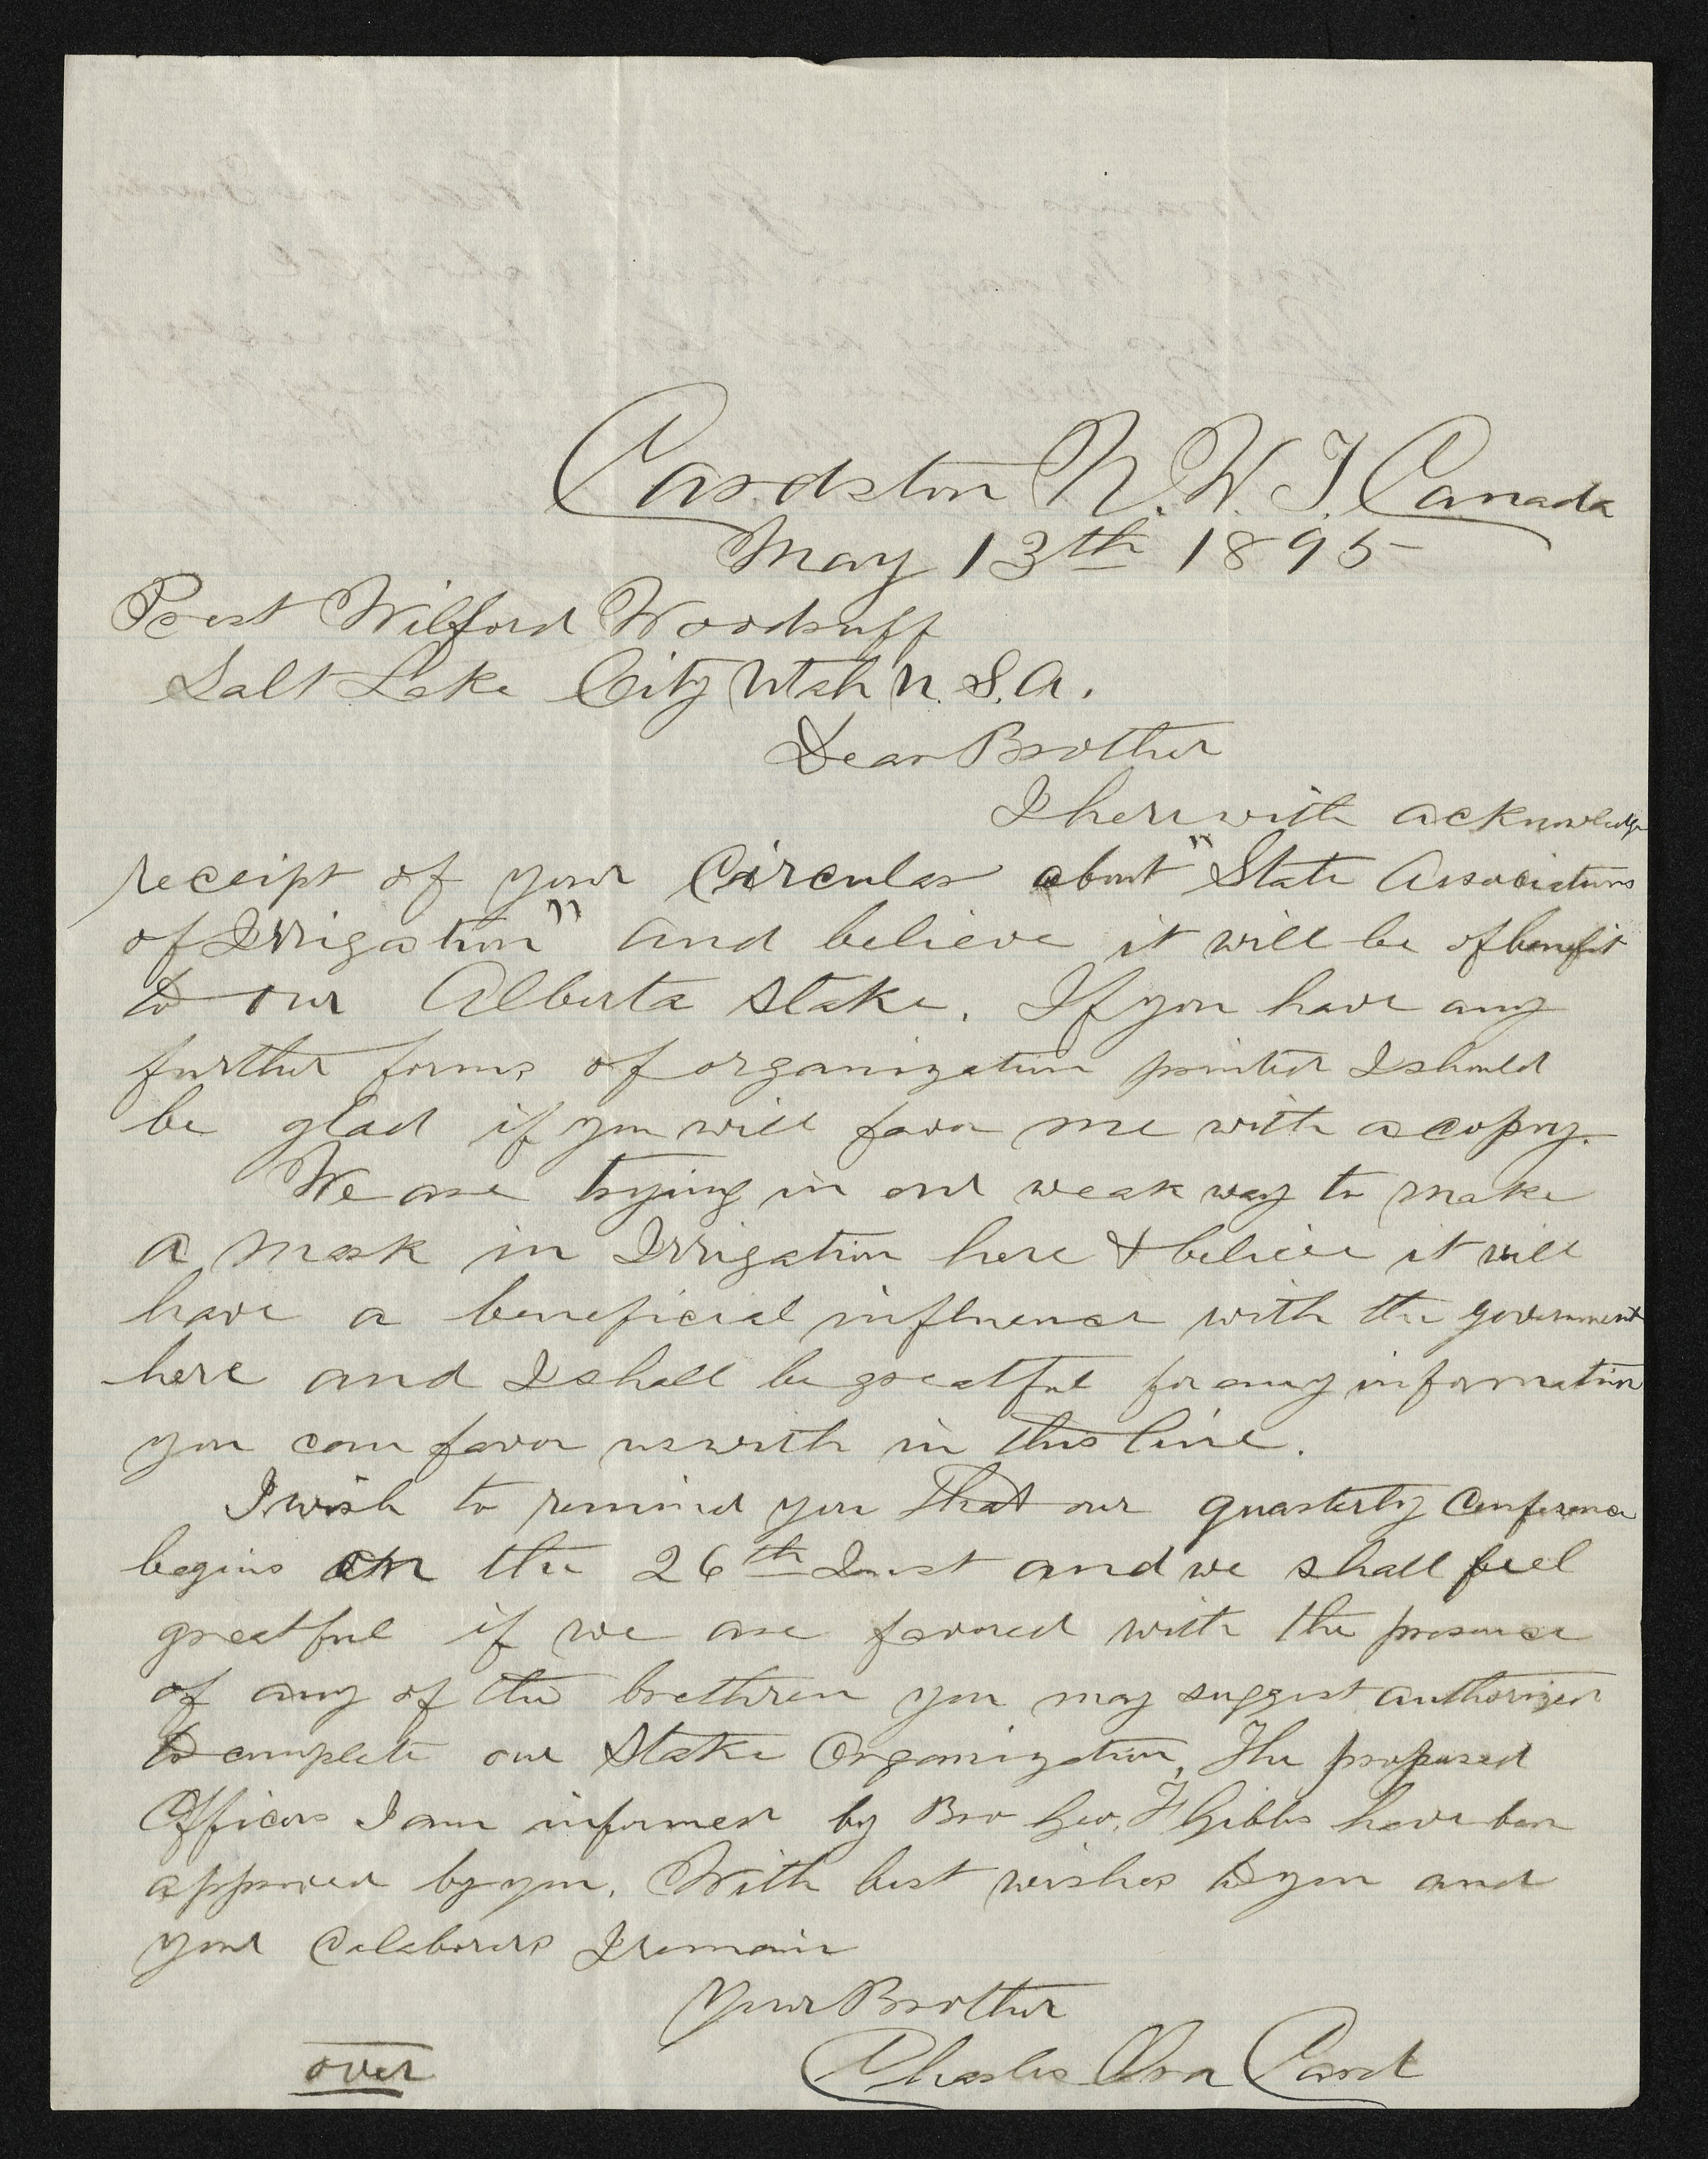 Cardston N. W. T. Canada
May 13th 1895
Prest Wilford Woodruff
Salt Lake City Utah U. S. A.
Dear Brother
I herewith acknowledge
receipt of your Circular about "State Associations
of Irrigation" and believe it will be of benefit
to our Alberta Stake. If you have any
further forms of organization printed I should
be glad if you will favor me with a copy.
We are trying in our weak way to make
a mark in Irrigation here & believe it will
have a beneficial influence with the government
here and I shall be greatful for any information
you can favor us with in this line.
I wish to remind you that our quarterly Conference
begins on the 26th Inst and we shall feel
greatful if we are favored with the presence
of any of the brethren you may suggest authorized
to complete our Stake Organization, The proposed
Officers I am informed by Bro Geo. F Gibbs have ben
approved by you. With best wishes to you and
your Colaborers I remain
Your Brother
Charles Ora Card
over